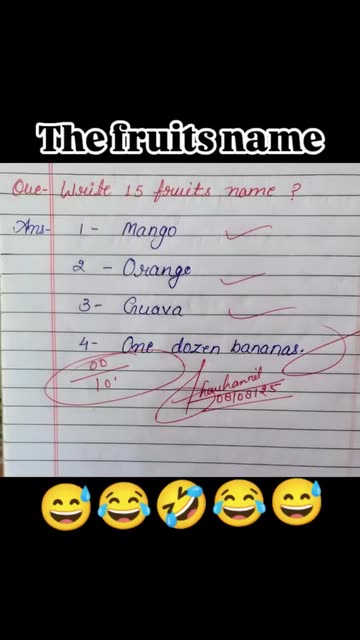 The fruits name
Que- Write 15 fruits name ?
Ans- 1- Mango
2 - Orange
3- Guava
4- One dozen bananas.
00
10
08/08/25